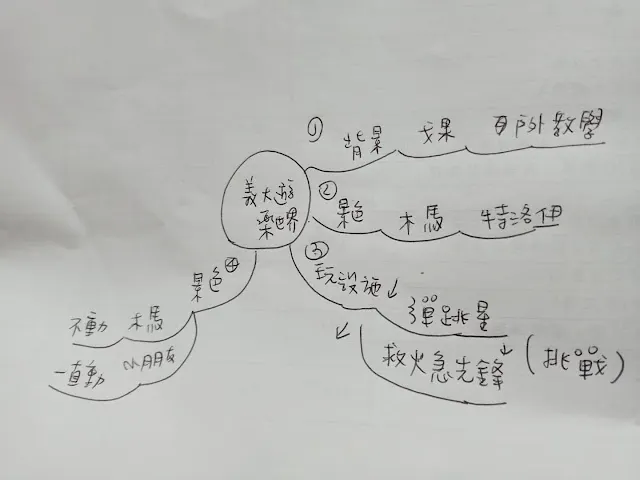 義大遊
樂世界
① 背景 成果 戶外教學
② 景色 木馬 特洛伊
③ 玩設施
彈跳星
救火急先鋒 (挑戰)
④ 景色
不動 木馬
一直動 小朋友